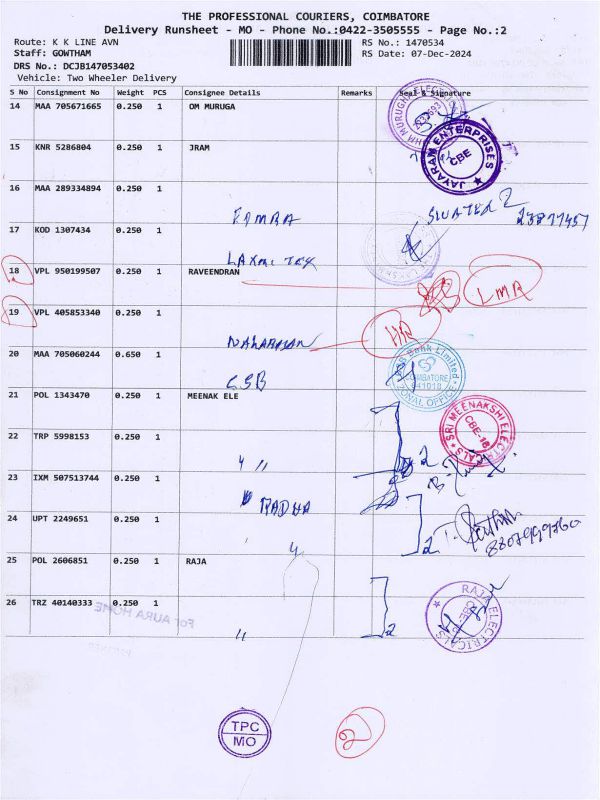 THE PROFESSIONAL COURIERS, COIMBATORE
Delivery Runsheet - MO - Phone No.:0422-3505555 - Page No.:2
Route: K K LINE AVN RS No.: 1470534
Staff: GOWTHAM RS Date: 07-Dec-2024
DRS No.: DCJB147053402
Vehicle: Two Wheeler Delivery
S No Consignment No Weight PCS Consignee Details Remarks Seal & Signature
14 MAA 705671665 0.250 1 OM MURUGA
15 KNR 5286804 0.250 1 JRAM
JAYARAM ENTERPRISES
CBE
16 MAA 289334894 0.250 1
17 KOD 1307434 0.250 1
LAXMI TEX
18 VPL 950199507 0.250 1 RAVEENDRAN
LMR
19 VPL 405853340 0.250 1
20 MAA 705060244 0.650 1
CSB
CSB Bank Limited
COIMBATORE
641018
ZONAL OFFICE
21 POL 1343470 0.250 1 MEENAK ELE
SRI MEENAKSHI ELECTRICALS
CBE-18
22 TRP 5998153 0.250 1
" 2
23 IXM 507513744 0.250 1
RADHA
24 UPT 2249651 0.250 1
2
8807999760
25 POL 2606851 0.250 1 RAJA
26 TRZ 40140333 0.250 1
For AURA HOME
PARTNER
" 2
RAJA ELECTRICALS
TPC
MO
2